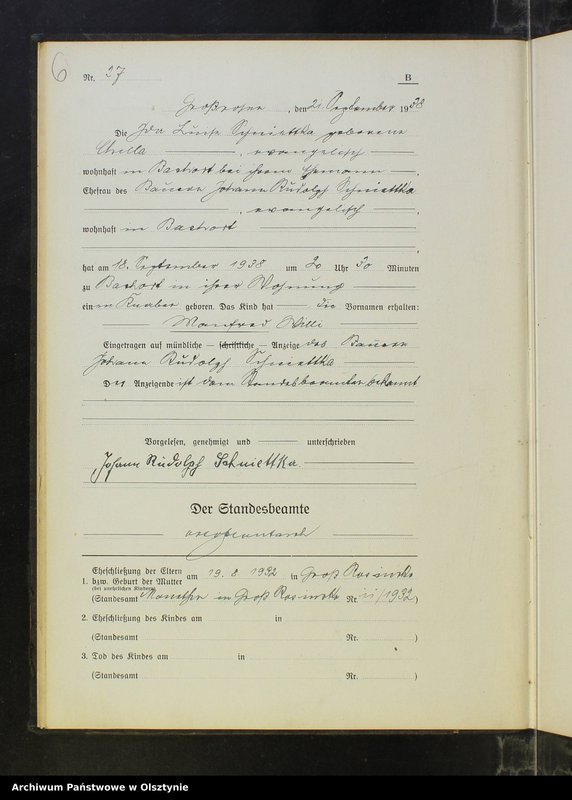 6
Nr. 37
B
Großrosen, den 21. September 1938
Die Ida Luise Schmettka geborene
evangelisch
wohnhaft in Bachort bei ihrem Ehemann
Ehefrau des Bauern Johann Rudolph Schmettka
, evangelisch
wohnhaft in Bachort
hat am 18. September 1938 um 20 Uhr 30 Minuten
zu Bachort in ihrer Wohnung
einen Knaben geboren. Das Kind hat die Vornamen erhalten:
Manfred Willi
Eingetragen auf mündliche – schriftliche – Anzeige des Bauern
Johann Rudolph Schmettka
Der Anzeigende ist dem Standesbeamten bekannt
Vorgelesen, genehmigt und unterschrieben
Johann Rudolph Schmettka.
Der Standesbeamte
1. Eheschließung der Eltern
bzw. Geburt der Mutter am 19. 8. 1932 in Groß Rosinsko
(bei unehelichen Kindern)
(Standesamt in Groß Rosinsko Nr. 11/1932)
2. Eheschließung des Kindes am in
(Standesamt Nr. )
3. Tod des Kindes am in
(Standesamt Nr. )
Archiwum Państwowe w Olsztynie